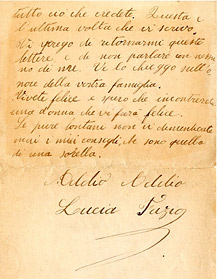 tutto ciò che credete. Questa è
l'ultima volta che vi scrivo.
Vi prego di ritornarmi queste
lettere e di non parlare con nessu
no di me. Ve lo chieggo sull'o
nore della vostra famiglia.
Vivete felice e spero che incontrerete
una donna che vi farà felice.
Se pure lontani non vi dimenticate
mai i miei consigli, che sono quelli
di una sorella.
Addio Addio
Lucia